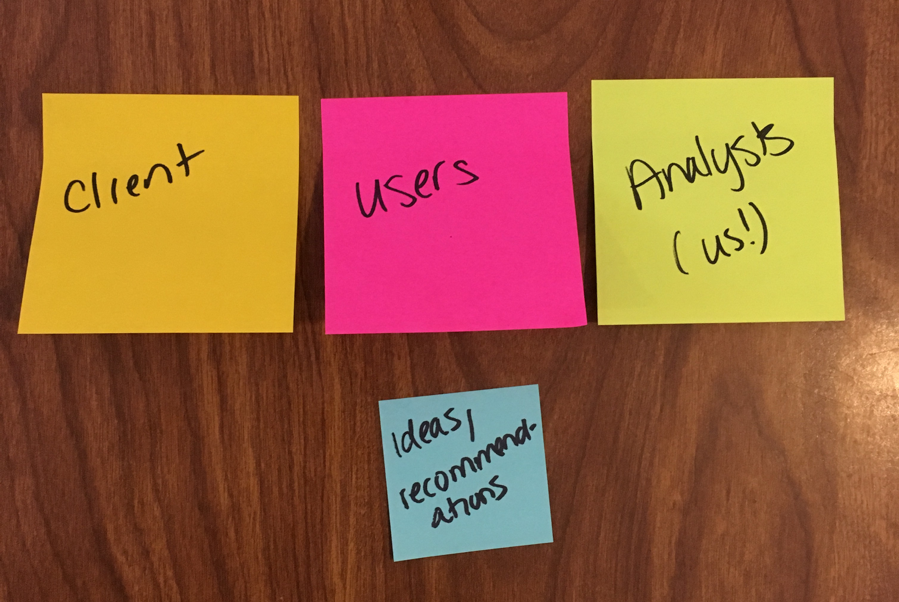 Client
users
Analysts
(us!)
Ideas,
recommend-
ations